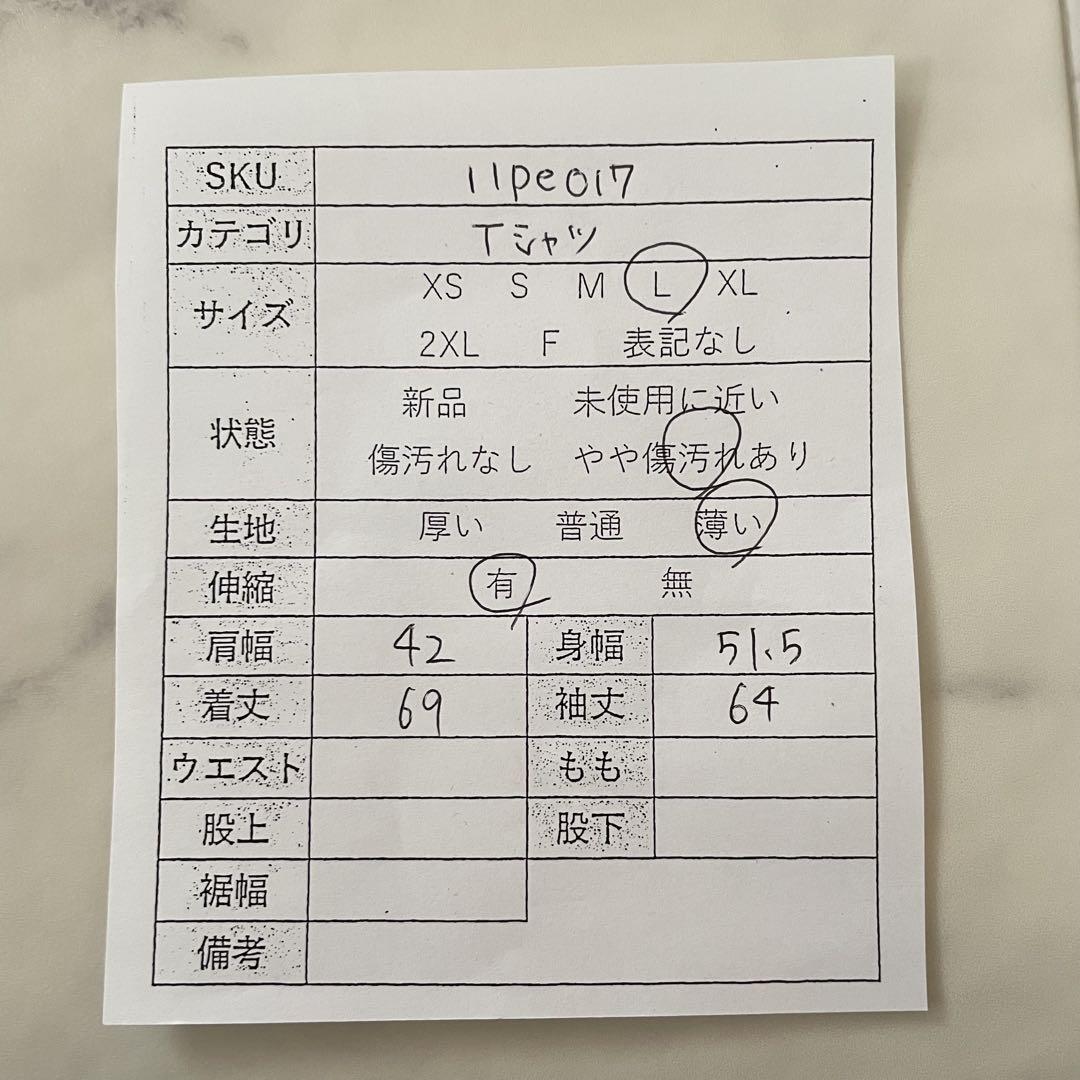 SKU 11pe017
カテゴリ Tシャツ
サイズ XS S M L XL
2XL F 表記なし
状態 新品 未使用に近い
傷汚れなし やや傷汚れあり
生地 厚い 普通 薄い
伸縮 有 無
肩幅 42 身幅 51.5
着丈 69 袖丈 64
ウエスト もも
股上 股下
裾幅
備考